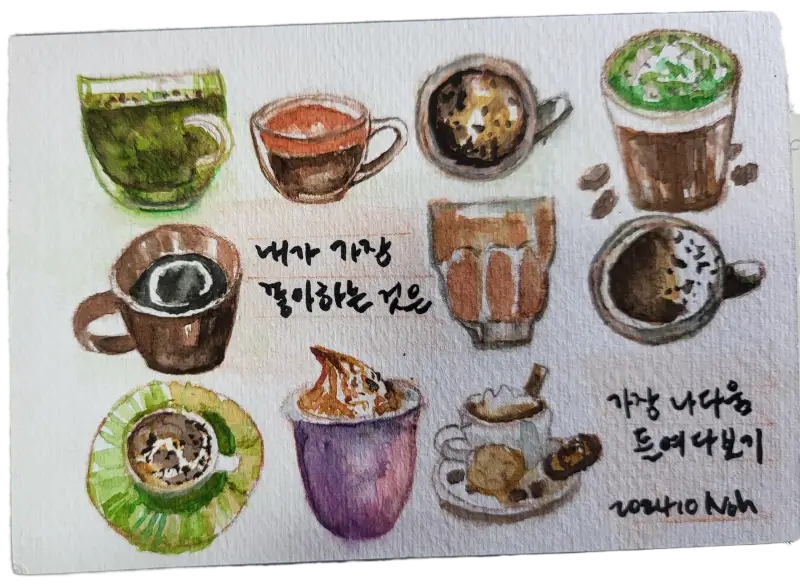 내가 가장
좋아하는 것은
가장 나다움
들여다보기
202410 Noh